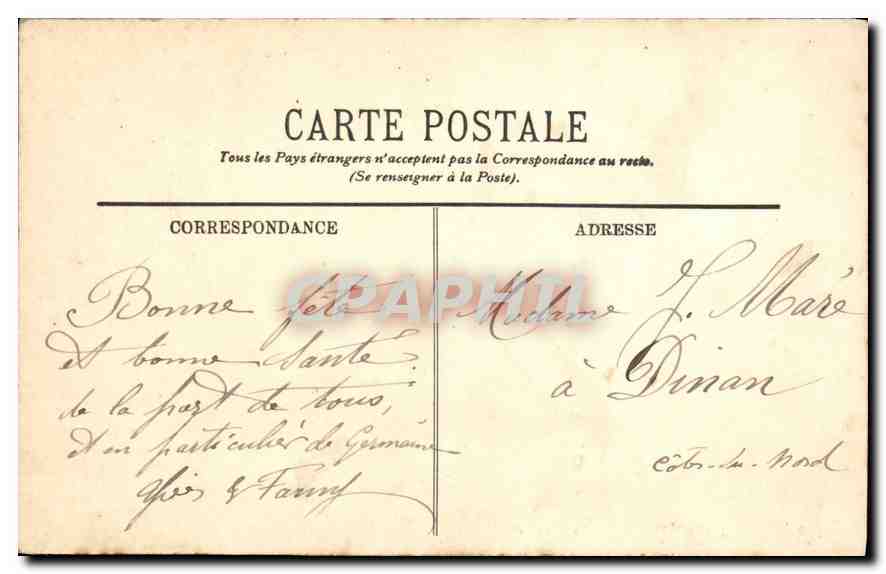 CARTE POSTALE
Tous les Pays étrangers n'acceptent pas la Correspondance au recto.
(Se renseigner à la Poste).
CORRESPONDANCE
Bonne fête
et bonne santé
de la part de tous,
et en particulier de Germaine
& Fanny
ADRESSE
Madame J. Maré
à Dinan
Côtes-du-Nord
CPAPHIL